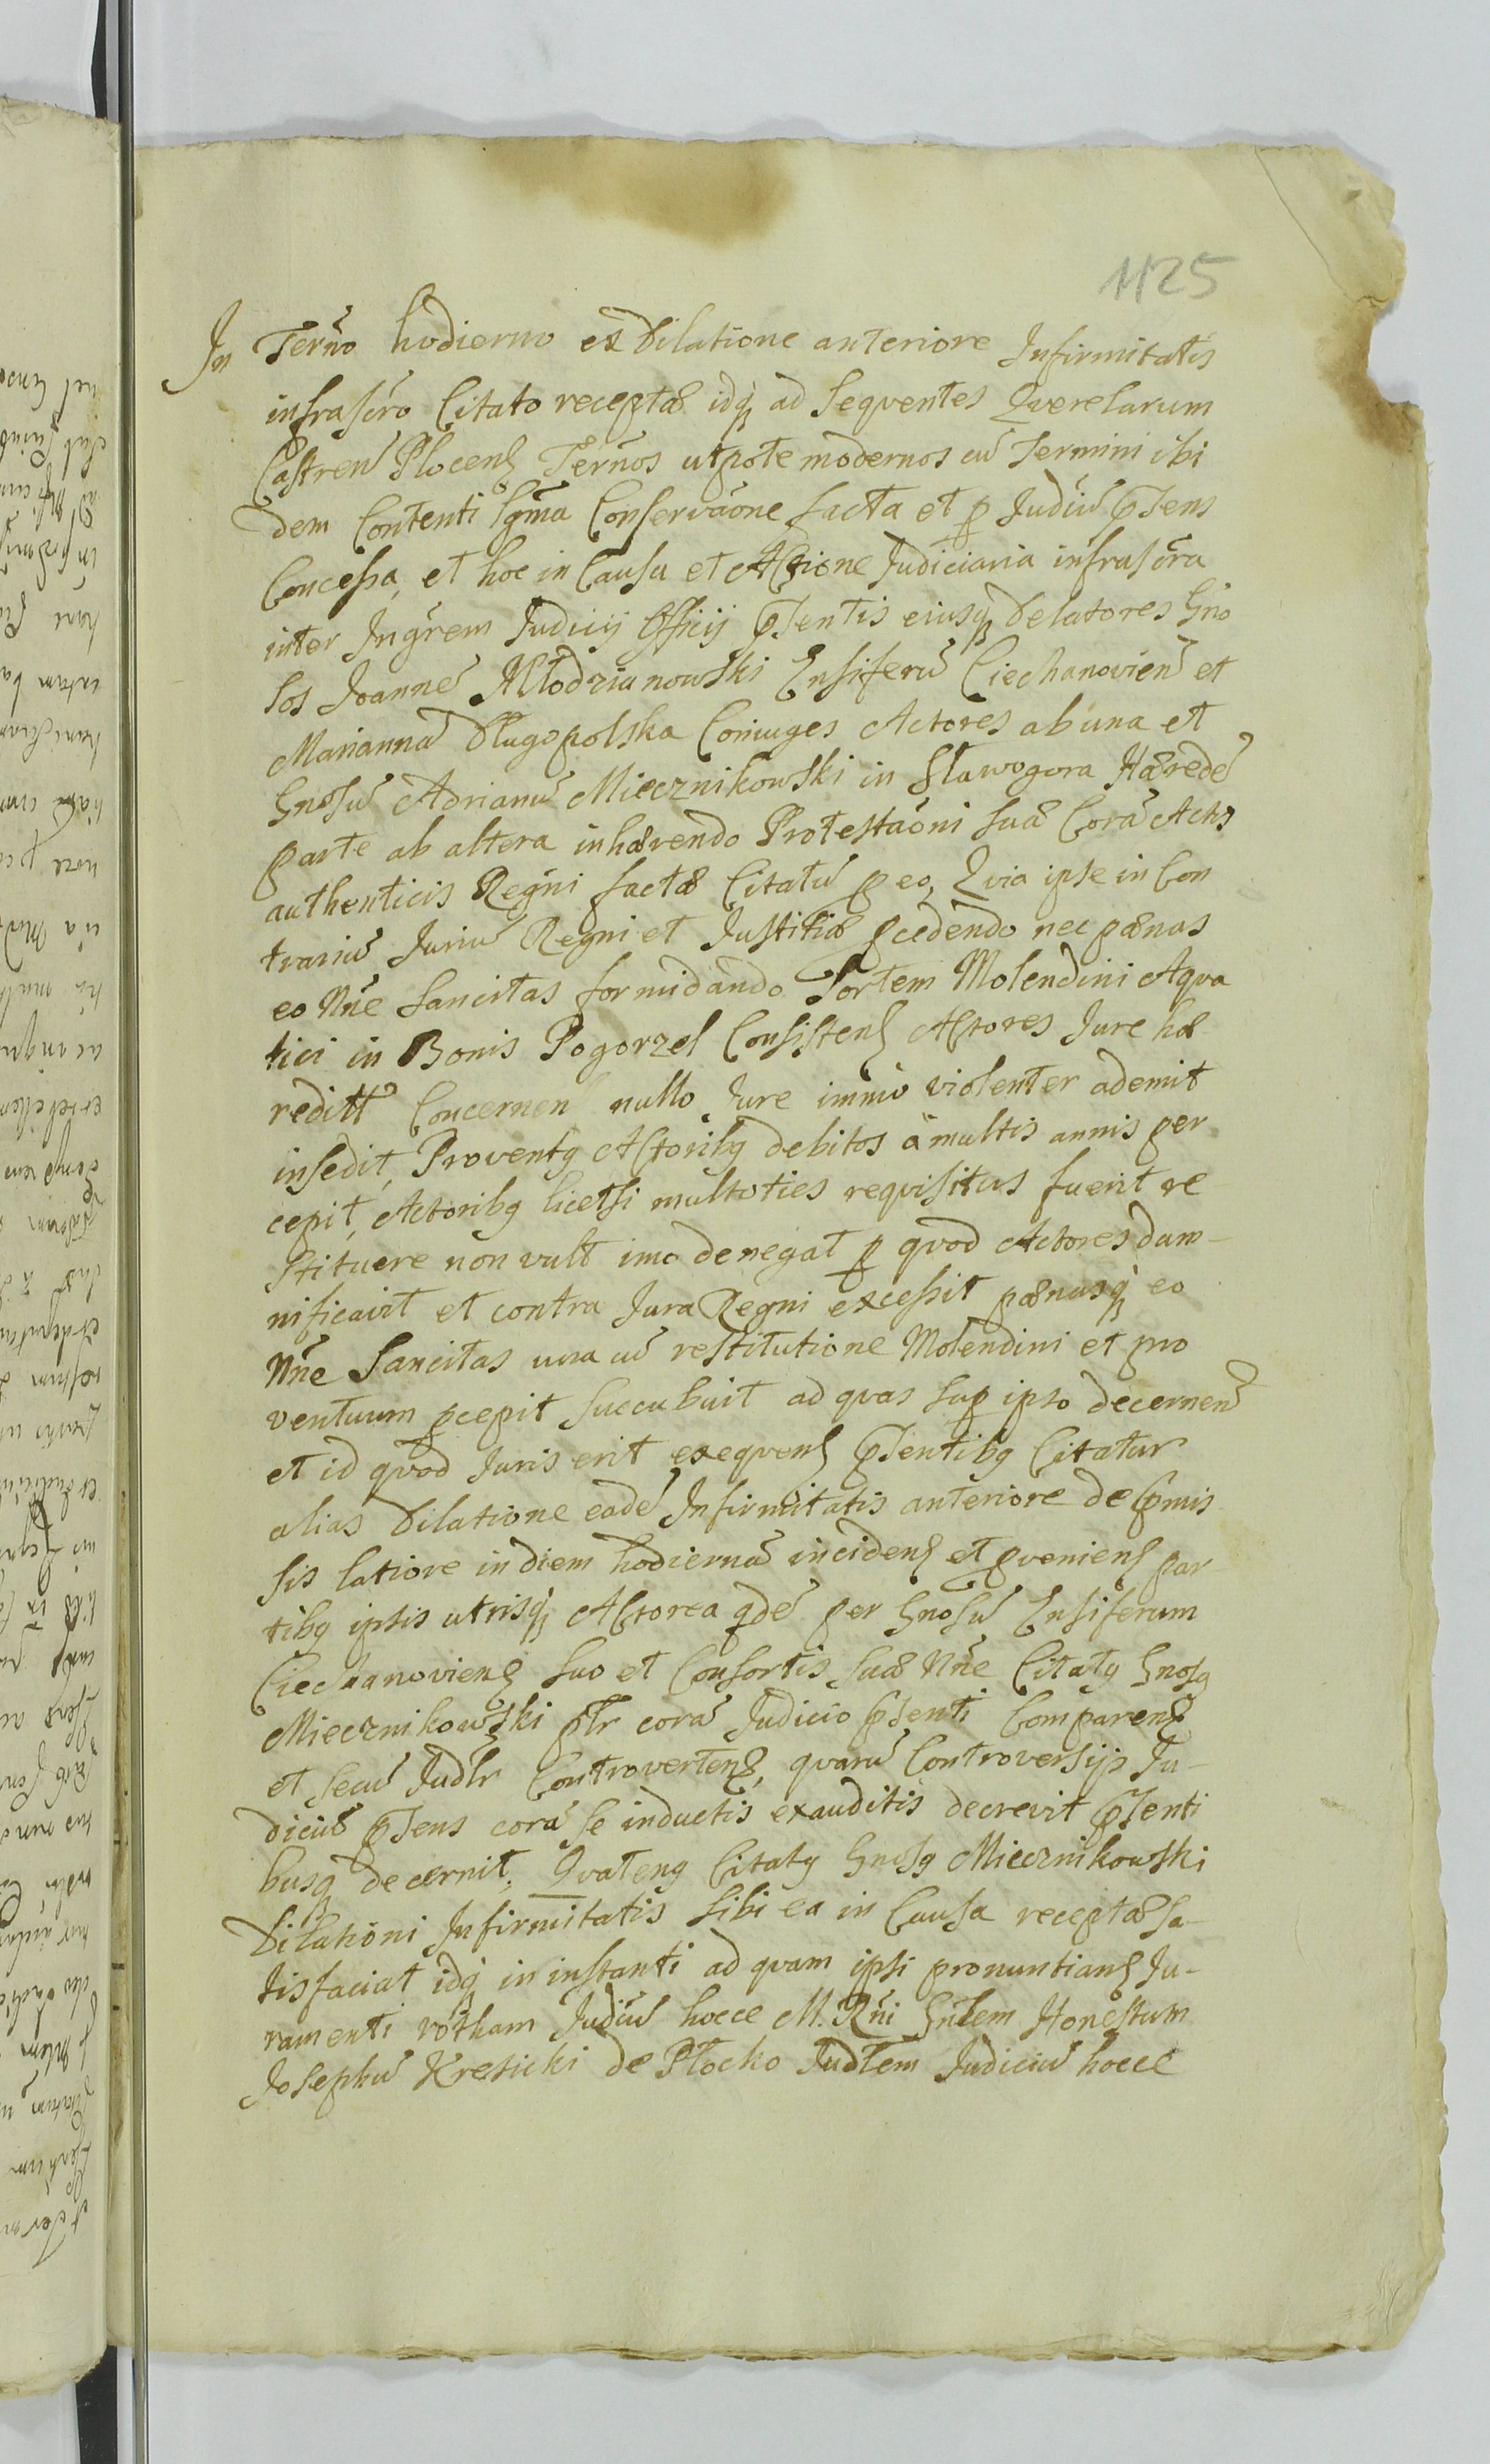 1125
In Terño hodierno ex Dilatione anteriore Infirmitatis
infrascro Citato receptæ idq, ad Sequentes Querelarum
Castreñ Plocens Terños utpote modernos cū Termini ibi
dem Contenti sgma Conservaõne facta et p Judiū pñtens
Concessa, et hoc in Causa et Actione Judiciaria infrascra
inter Ingrem Judicij Officij pñtentis eiusq, Delatores Gño
sos Joannē Młodzianowski Ensiferū Ciechanovieñ et
Mariannā Długopolska Coniuges Actores ab una et
Gnosū Adrianū Miecznikowski in Sławogora Hæredē
parte ab altera inhærendo Protestaõni suæ Corā Actis
authenticis Regni factæ Citatū p eo, Quia ipse in Con
trariū Juriū Regni et Justitiæ pcedendo nec pænas
eo Nñe sancitas formidando Sortem Molendini Aqua
tici in Bonis Pogorzel Consistens Actores Jure hæ
reditt Concerneñ nullo Jure imo violenter ademit
insedit, Proventq Actoribq debitos à multis annis per
cepit, Actoribq licetsi multoties requisitus fuerit re
stituere non vult imo denegat p quod Actores dam-
nificavit et contra Jura Regni excessit pænasq, eo
Nñe Sancitas una cū restitutione Molendini et pro
ventuum pcepit succubuit ad quas sup ipso decerneñ
et id quod Juris erit exequens pñtentibq Citatur
alias Dilatione eadē Infirmitatis anteriore de pmis
sis latiore in diem hodiernā incidens et pveniens par
tibq ipsis utrisq, Actorea qdē per Gnosū Ensiferum
Ciechanoviens suo et Consortis suæ Nñe Citatq Gnosq
Miecznikowski pltr corā Judicio pñtenti Comparens
et secū Judlr Controvertens, quarū Controversijs Ju-
diciū pñtens corā se inductis exauditis decrevit pñtenti
busq decernit, Quatenq Citatq Gnosq Miecznikowski
Dilationi Infirmitatis sibi ea in Causa receptæ sa-
tisfaciat idq in instanti ad quam ipsi pronuntians Ju-
ramenti rotham Judiū hocce M. Rñi Gnlem Honestum
Josephū Kresicki de Płocko Judlem Judiciū hocce